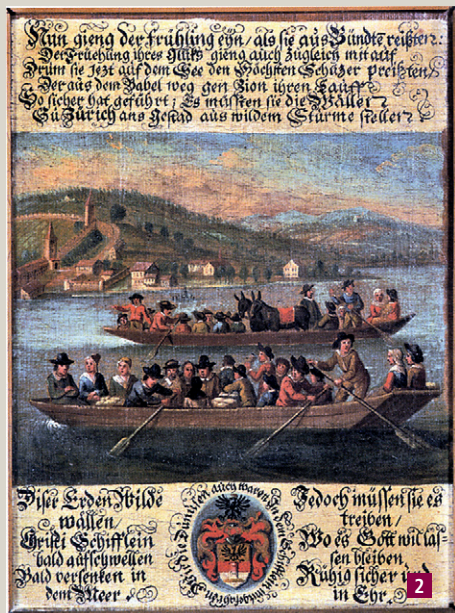 Nun gieng der Frühling eyn / als sie aus Bündte reißten:
Der Fruehung ihres Glüks gieng auch zugleich mit auf
Drum sie jezt auf dem See den Höchsten Schüzer preißten
Der aus dem Babel weg gen Zion ihren Lauff
So sicher hat geführt; Es müsten sie die Wäller
Zü Zürich ans Gestad aus wildem Sturme stellen
Diser Erden Wilde
wallen /
Christi Schifflein
bald aufschwellen
Bald versenken in
dem Meer
auch waren
Jedoch müssen sie es
treiben /
Wo es Gott wil las-
sen bleiben
Ruhig sicher und
in Ehr.
2